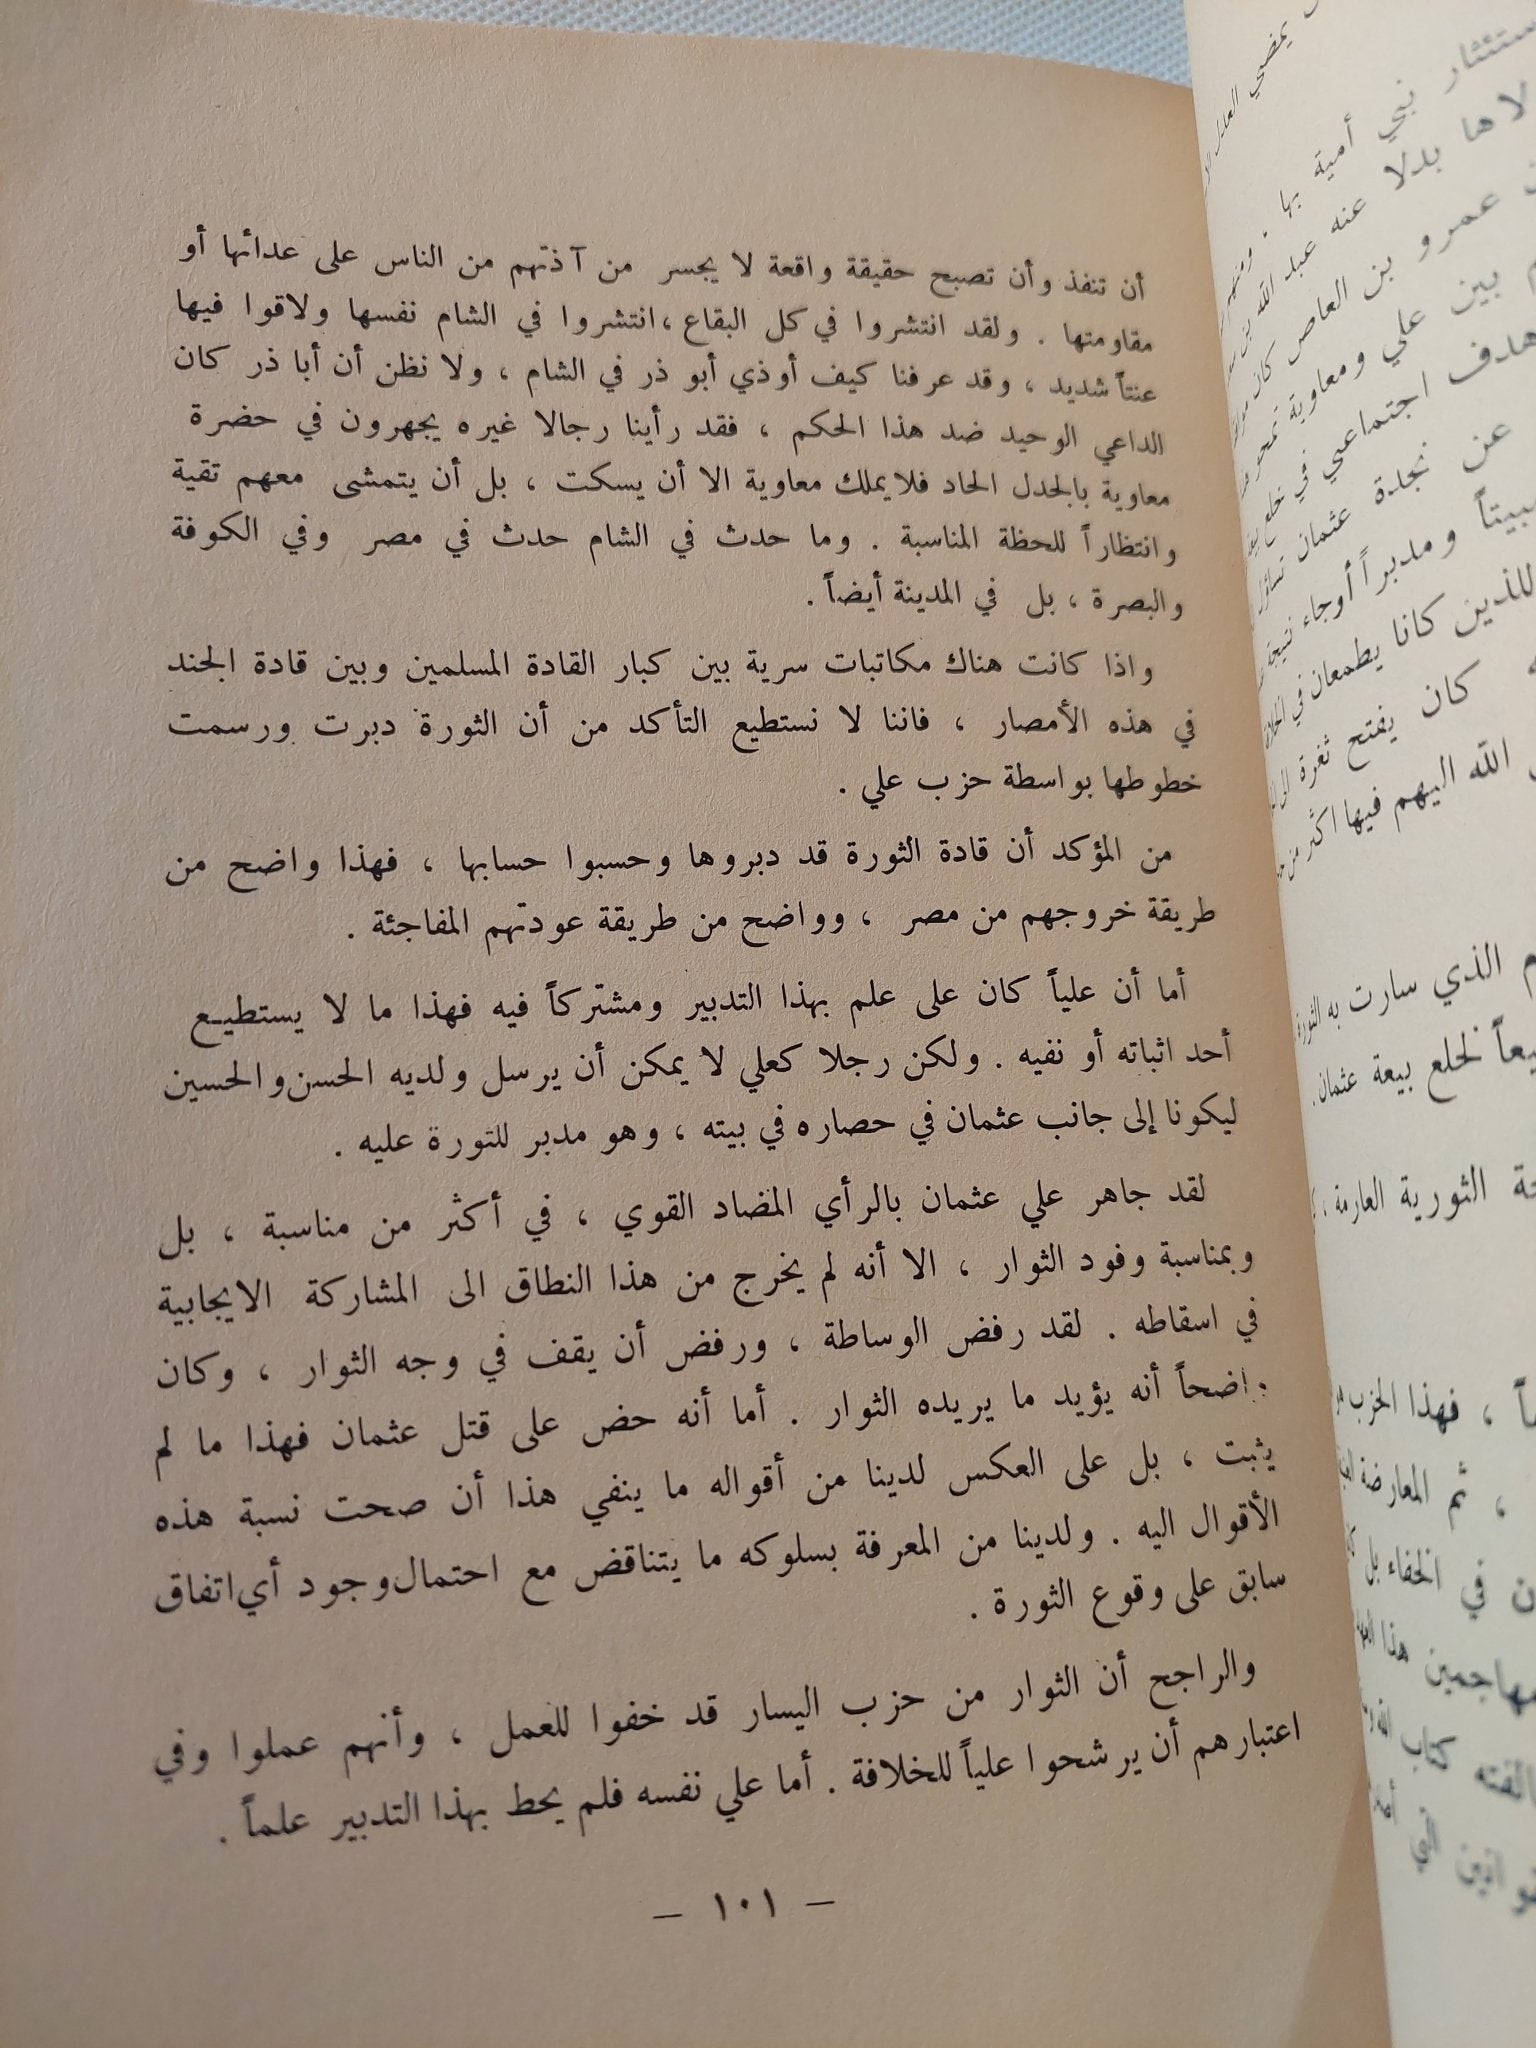 أن تنفذ وأن تصبح حقيقة واقعة لا يجسر من آذتهم من الناس على عدائها أو
مقاومتها . ولقد انتشروا في كل البقاع ، انتشروا في الشام نفسها ولاقوا فيها
عنتاً شديد ، وقد عرفنا كيف أوذي أبو ذر في الشام ، ولا نظن أن أبا ذر كان
الداعي الوحيد ضد هذا الحكم ، فقد رأينا رجالا غيره يجهرون في حضرة
معاوية بالجدل الحاد فلا يملك معاوية الا أن يسكت ، بل أن يتمشى معهم تقية
وانتظاراً للحظة المناسبة . وما حدث في الشام حدث في مصر وفي الكوفة
والبصرة ، بل في المدينة أيضاً .
واذا كانت هناك مكاتبات سرية بين كبار القادة المسلمين وبين قادة الجند
في هذه الأمصار ، فاننا لا نستطيع التأكد من أن الثورة دبرت ورسمت
خطوطها بواسطة حزب علي .
من المؤكد أن قادة الثورة قد دبروها وحسبوا حسابها ، فهذا واضح من
طريقة خروجهم من مصر ، وواضح من طريقة عودتهم المفاجئة .
أما أن علياً كان على علم بهذا التدبير ومشتركاً فيه فهذا ما لا يستطيع
أحد اثباته أو نفيه . ولكن رجلا كعلي لا يمكن أن يرسل ولديه الحسن والحسين
ليكونا إلى جانب عثمان في حصاره في بيته ، وهو مدبر للثورة عليه .
لقد جاهر علي عثمان بالرأي المضاد القوي ، في أكثر من مناسبة ، بل
وبمناسبة وفود الثوار ، الا أنه لم يخرج من هذا النطاق الى المشاركة الايجابية
في اسقاطه . لقد رفض الوساطة ، ورفض أن يقف في وجه الثوار ، وكان
واضحاً أنه يؤيد ما يريده الثوار . أما أنه حض على قتل عثمان فهذا ما لم
يثبت ، بل على العكس لدينا من أقواله ما ينفي هذا أن صحت نسبة هذه
الأقوال اليه . ولدينا من المعرفة بسلوكه ما يتناقض مع احتمال وجود أي اتفاق
سابق على وقوع الثورة .
والراجح أن الثوار من حزب اليسار قد خفوا للعمل ، وأنهم عملوا وفي
اعتبارهم أن يرشحوا علياً للخلافة . أما علي نفسه فلم يحط بهذا التدبير علماً .
— ١٠١ —
يمضي
نبي أمية بها . ومنهم
بدلا عنه عبد الله بن
عمرو بن العاص كان
بين علي ومعاوية
هدف اجتماعي في خلع
عن نجدة عثمان
ومدبراً أوجاء نتيجة
للذين كانا يطمعان في
كان يفتح ثغرة
الله اليهم فيها اكثر من
الذي سارت به الثورة
لخلع بيعة عثمان .
الثورية العارمة ،
، فهذا الحزب
، ثم المعارضة
في الخفاء بل
هذا
كتاب الله